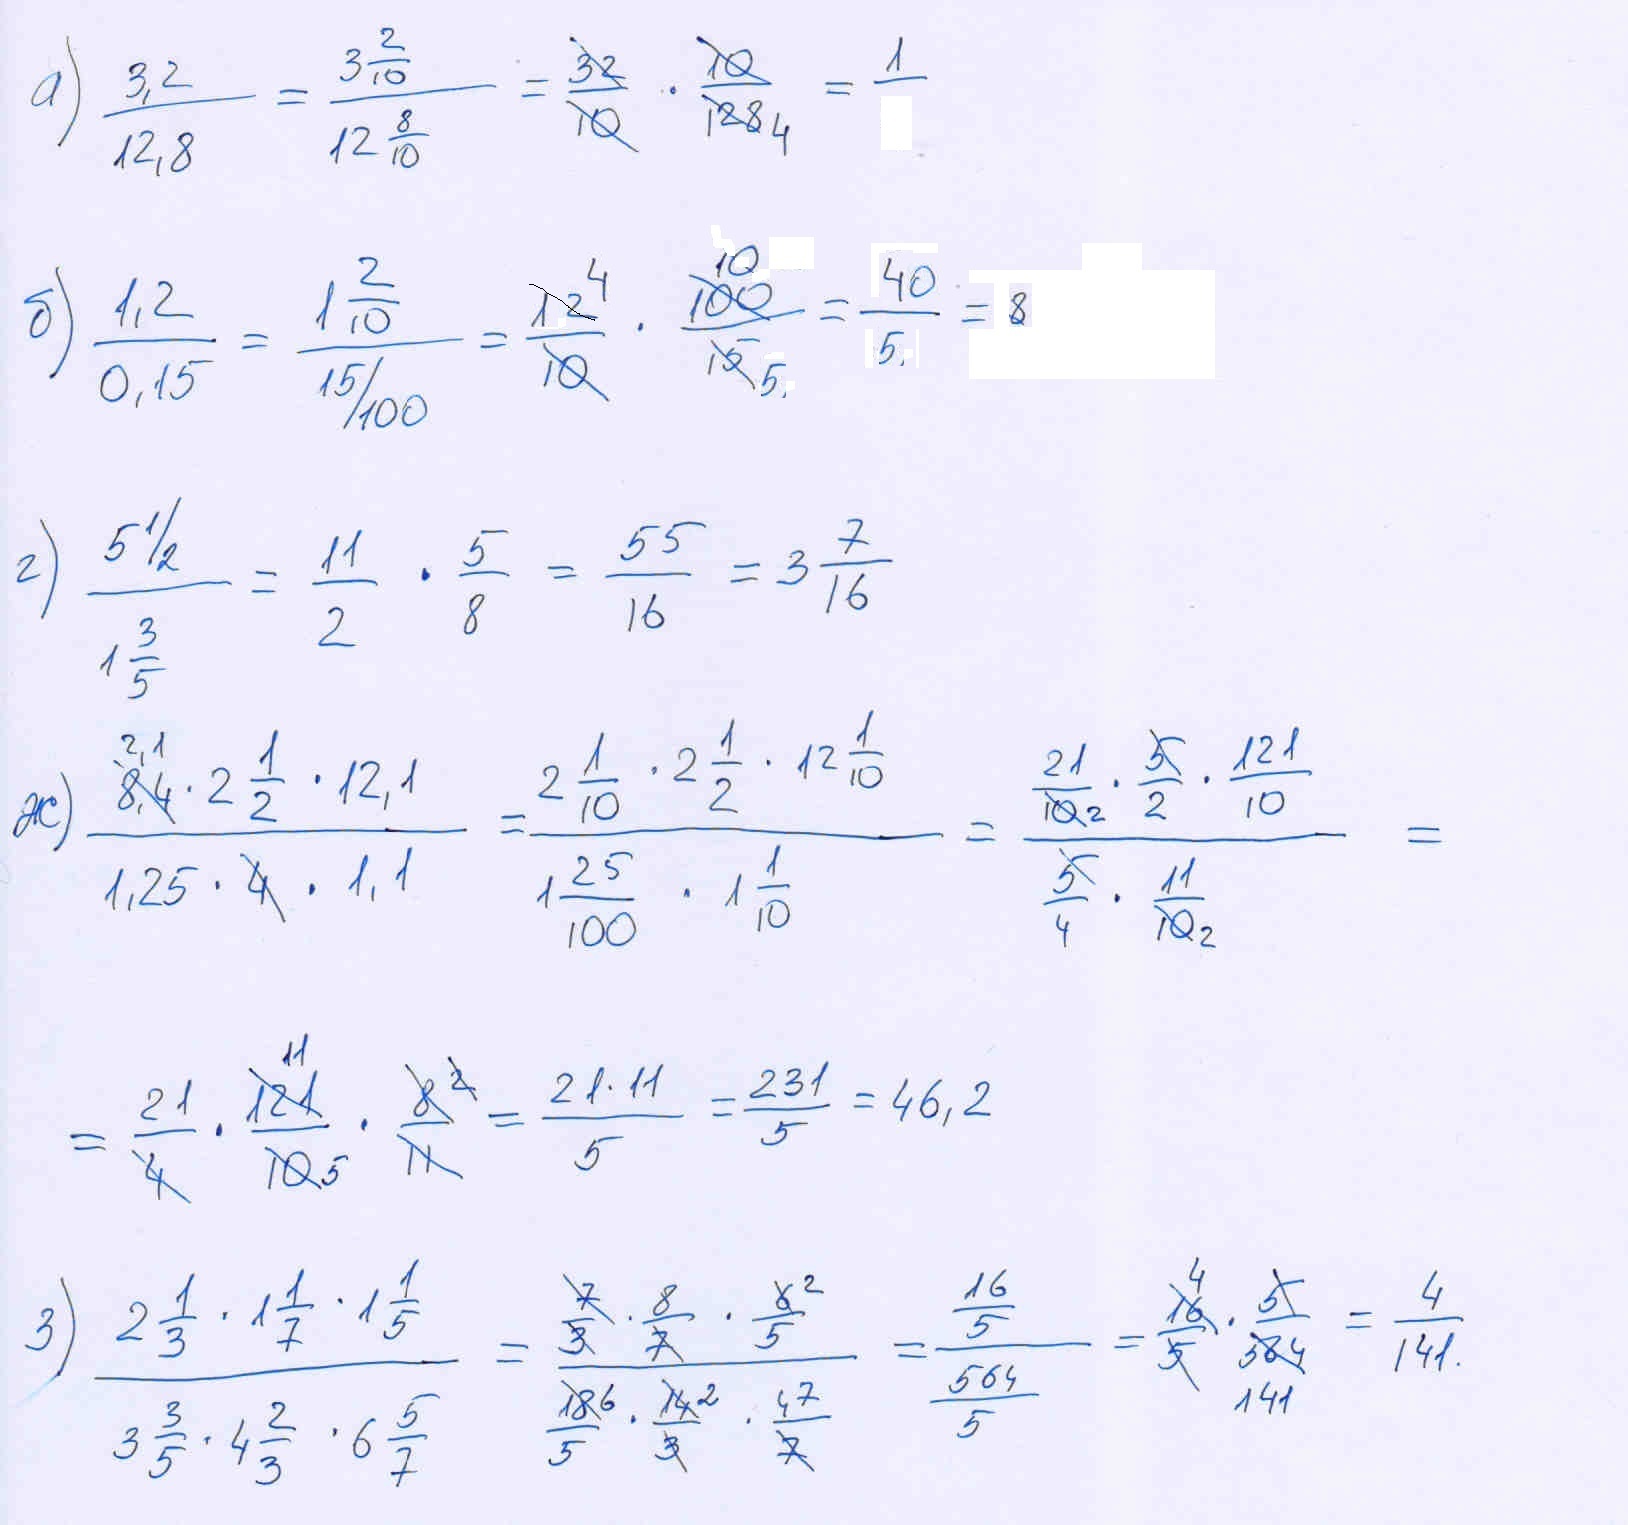 а) 3,2/12,8 = 3 2/10 / 12 8/10 = 32/10 · 10/128 4 = 1/
б) 1,2/0,15 = 1 2/10 / 15/100 = 12 4/10 · 10 100/15 5 = 40/5 = 8
г) 5 1/2 / 1 3/5 = 11/2 · 5/8 = 55/16 = 3 7/16
ж) 2,1 8,4 · 2 1/2 · 12,1 / 1,25 · 4 · 1,1 = 2 1/10 · 2 1/2 · 12 1/10 / 1 25/100 · 1 1/10 = 21/10 2 · 5/2 · 121/10 / 5/4 · 11/10 2 =
= 21/4 · 11 121/10 5 · 8 2/11 = 21·11/5 = 231/5 = 46,2
з) 2 1/3 · 1 1/7 · 1 1/5 / 3 3/5 · 4 2/3 · 6 5/7 = 7/3 · 8/7 · 6 2/5 / 18 6/5 · 14 2/3 · 47/7 = 16/5 / 564/5 = 4 16/5 · 5/564 141 = 4/141.